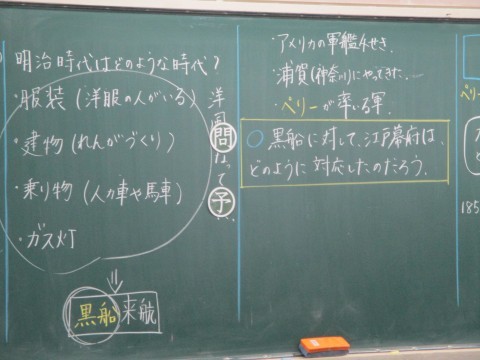 明治時代はどのような時代?
・服装(洋服の人がいる)
・建物(れんがづくり)
・乗り物(人力車や馬車)
・ガス灯
⇓
黒船来航
洋風
問
なって
予
・アメリカの軍艦4せき.
・浦賀(神奈川)にやってきた.
・ペリーが率いる軍.
○黒船に対して、江戸幕府は、
どのように対応したのだろう.
ペリー
185